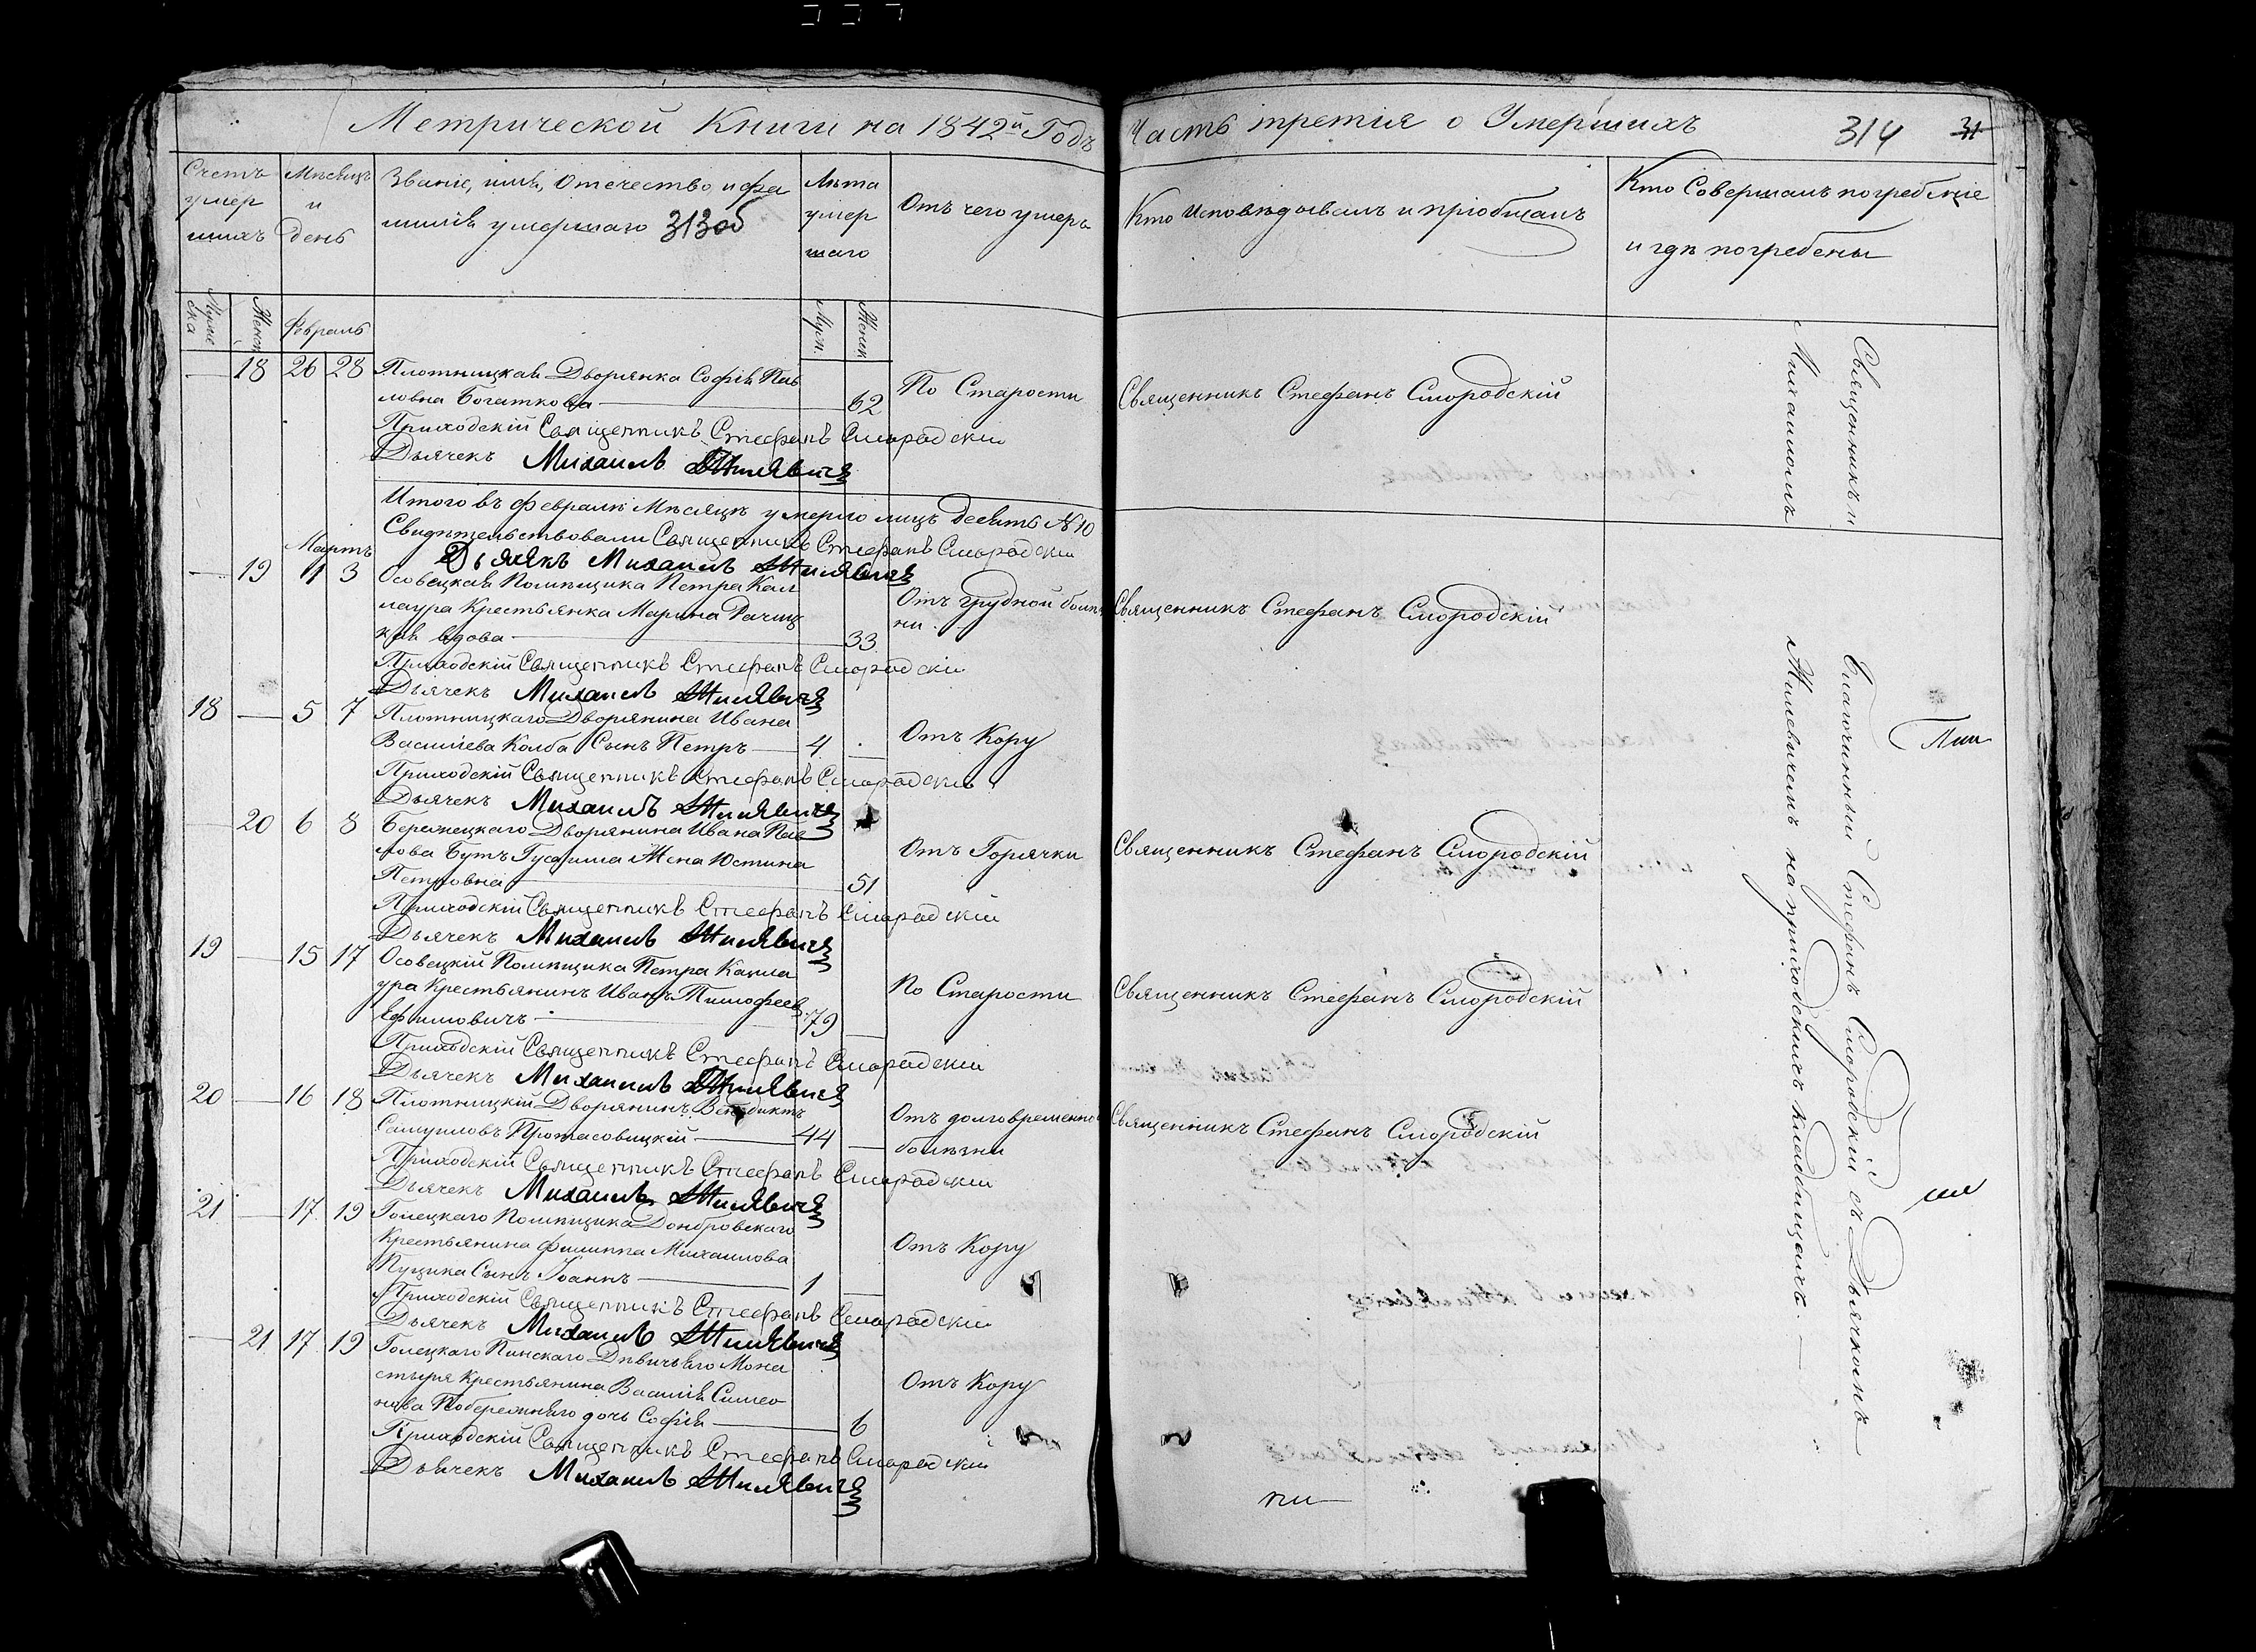 Метрической Книги на 1842й Годъ
Часть третія о Умершихъ
314
31
Счетъ умер шихъ
Мѣсяцъ и день
Званіе, имя, Отечество и фа
милія умершаго 313об
Лѣта умер шаго
Отъ чего умеръ
Кто Исповѣдывалъ и пріобщалъ
Кто Совершалъ погребеніе
и гдѣ погребены
Муже ска
Женск
Февраль
Муж.
Женск
— 18 26 28 Плотницкая Дворянка Софія Пав
ловна Богаткова — 62 По Старости Священникъ Стефанъ Смородскій
Приходскій Священникъ Стефанъ Смородскій
Дьячекъ Михаилъ Жилевичъ
Итого въ Февралѣ Мѣсяцѣ умерло лицъ десять № 10
Свидѣтельствовали Священникъ Стефанъ Смородскій
Дьячекъ Михаилъ Жилевичъ
Мартъ
— 19 1 3 Осовецкая Помѣщика Петра Кап
лаура Крестьянка Марина Рачиц
кая вдова — 33 Отъ грудной болѣз
ни. Священникъ Стефанъ Смородскій
Приходскій Священникъ Стефанъ Смородскій
Дьячекъ Михаилъ Жилевичъ
18 — 5 7 Плотницкаго Дворянина Ивана
Васильева Колба Сынъ Петръ — 4 Отъ Кору
Приходскій Священникъ Стефанъ Смородскій
Дьячекъ Михаилъ Жилевичъ
— 20 6 8 Бережецкаго Дворянина Ивана Пав
лова Бутъ Гусаима Жена Юстина
Петровна — 51 Отъ Горячки Священникъ Стефанъ Смородскій
Приходскій Священникъ Стефанъ Смородскій
Дьячекъ Михаилъ Жилевичъ
19 — 15 17 Осовецкій Помѣщика Петра Капла
ура Крестьянинъ Иванъ Тимофеев
Ефимовичъ — 79 По Старости Священникъ Стефанъ Смородскій
Приходскій Священникъ Стефанъ Смородскій
Дьячекъ Михаилъ Жилевичъ
20 — 16 18 Плотницкій Дворянинъ Венедиктъ
Самуиловъ Протасовицкій — 44 — Отъ долговременно
болѣзни Священникъ Стефанъ Смородскій
Приходскій Священникъ Стефанъ Смородскій
Дьячекъ Михаилъ Жилевичъ
21 — 17 19 Голецкаго Помѣщика Домбровскаго
Крестьянина Филиппа Михаилова
Пуцика Сынъ Іоаннъ — 1 — Отъ Кору
Приходскій Священникъ Стефанъ Смородскій
Дьячекъ Михаилъ Жилевичъ
— 21 17 19 Голецкаго Пинскаго Дѣвичьяго Мона
стыря Крестьянина Василія Симео
нова Побережняго дочь Софія — 6 Отъ Кору
Приходскій Священникъ Стефанъ Смородскій
Дьячекъ Михаилъ Жилевичъ
Священникъ и
Михаиломъ
Стефанъ Смородскій съ Дьячкомъ
Жилевичемъ на приходскихъ кладбищахъ. —